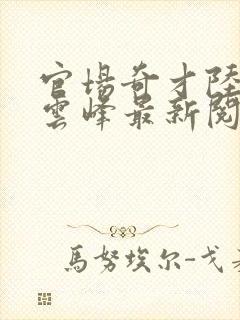 官場奇才陸
雲峰最新閱
馬努埃尔-戈